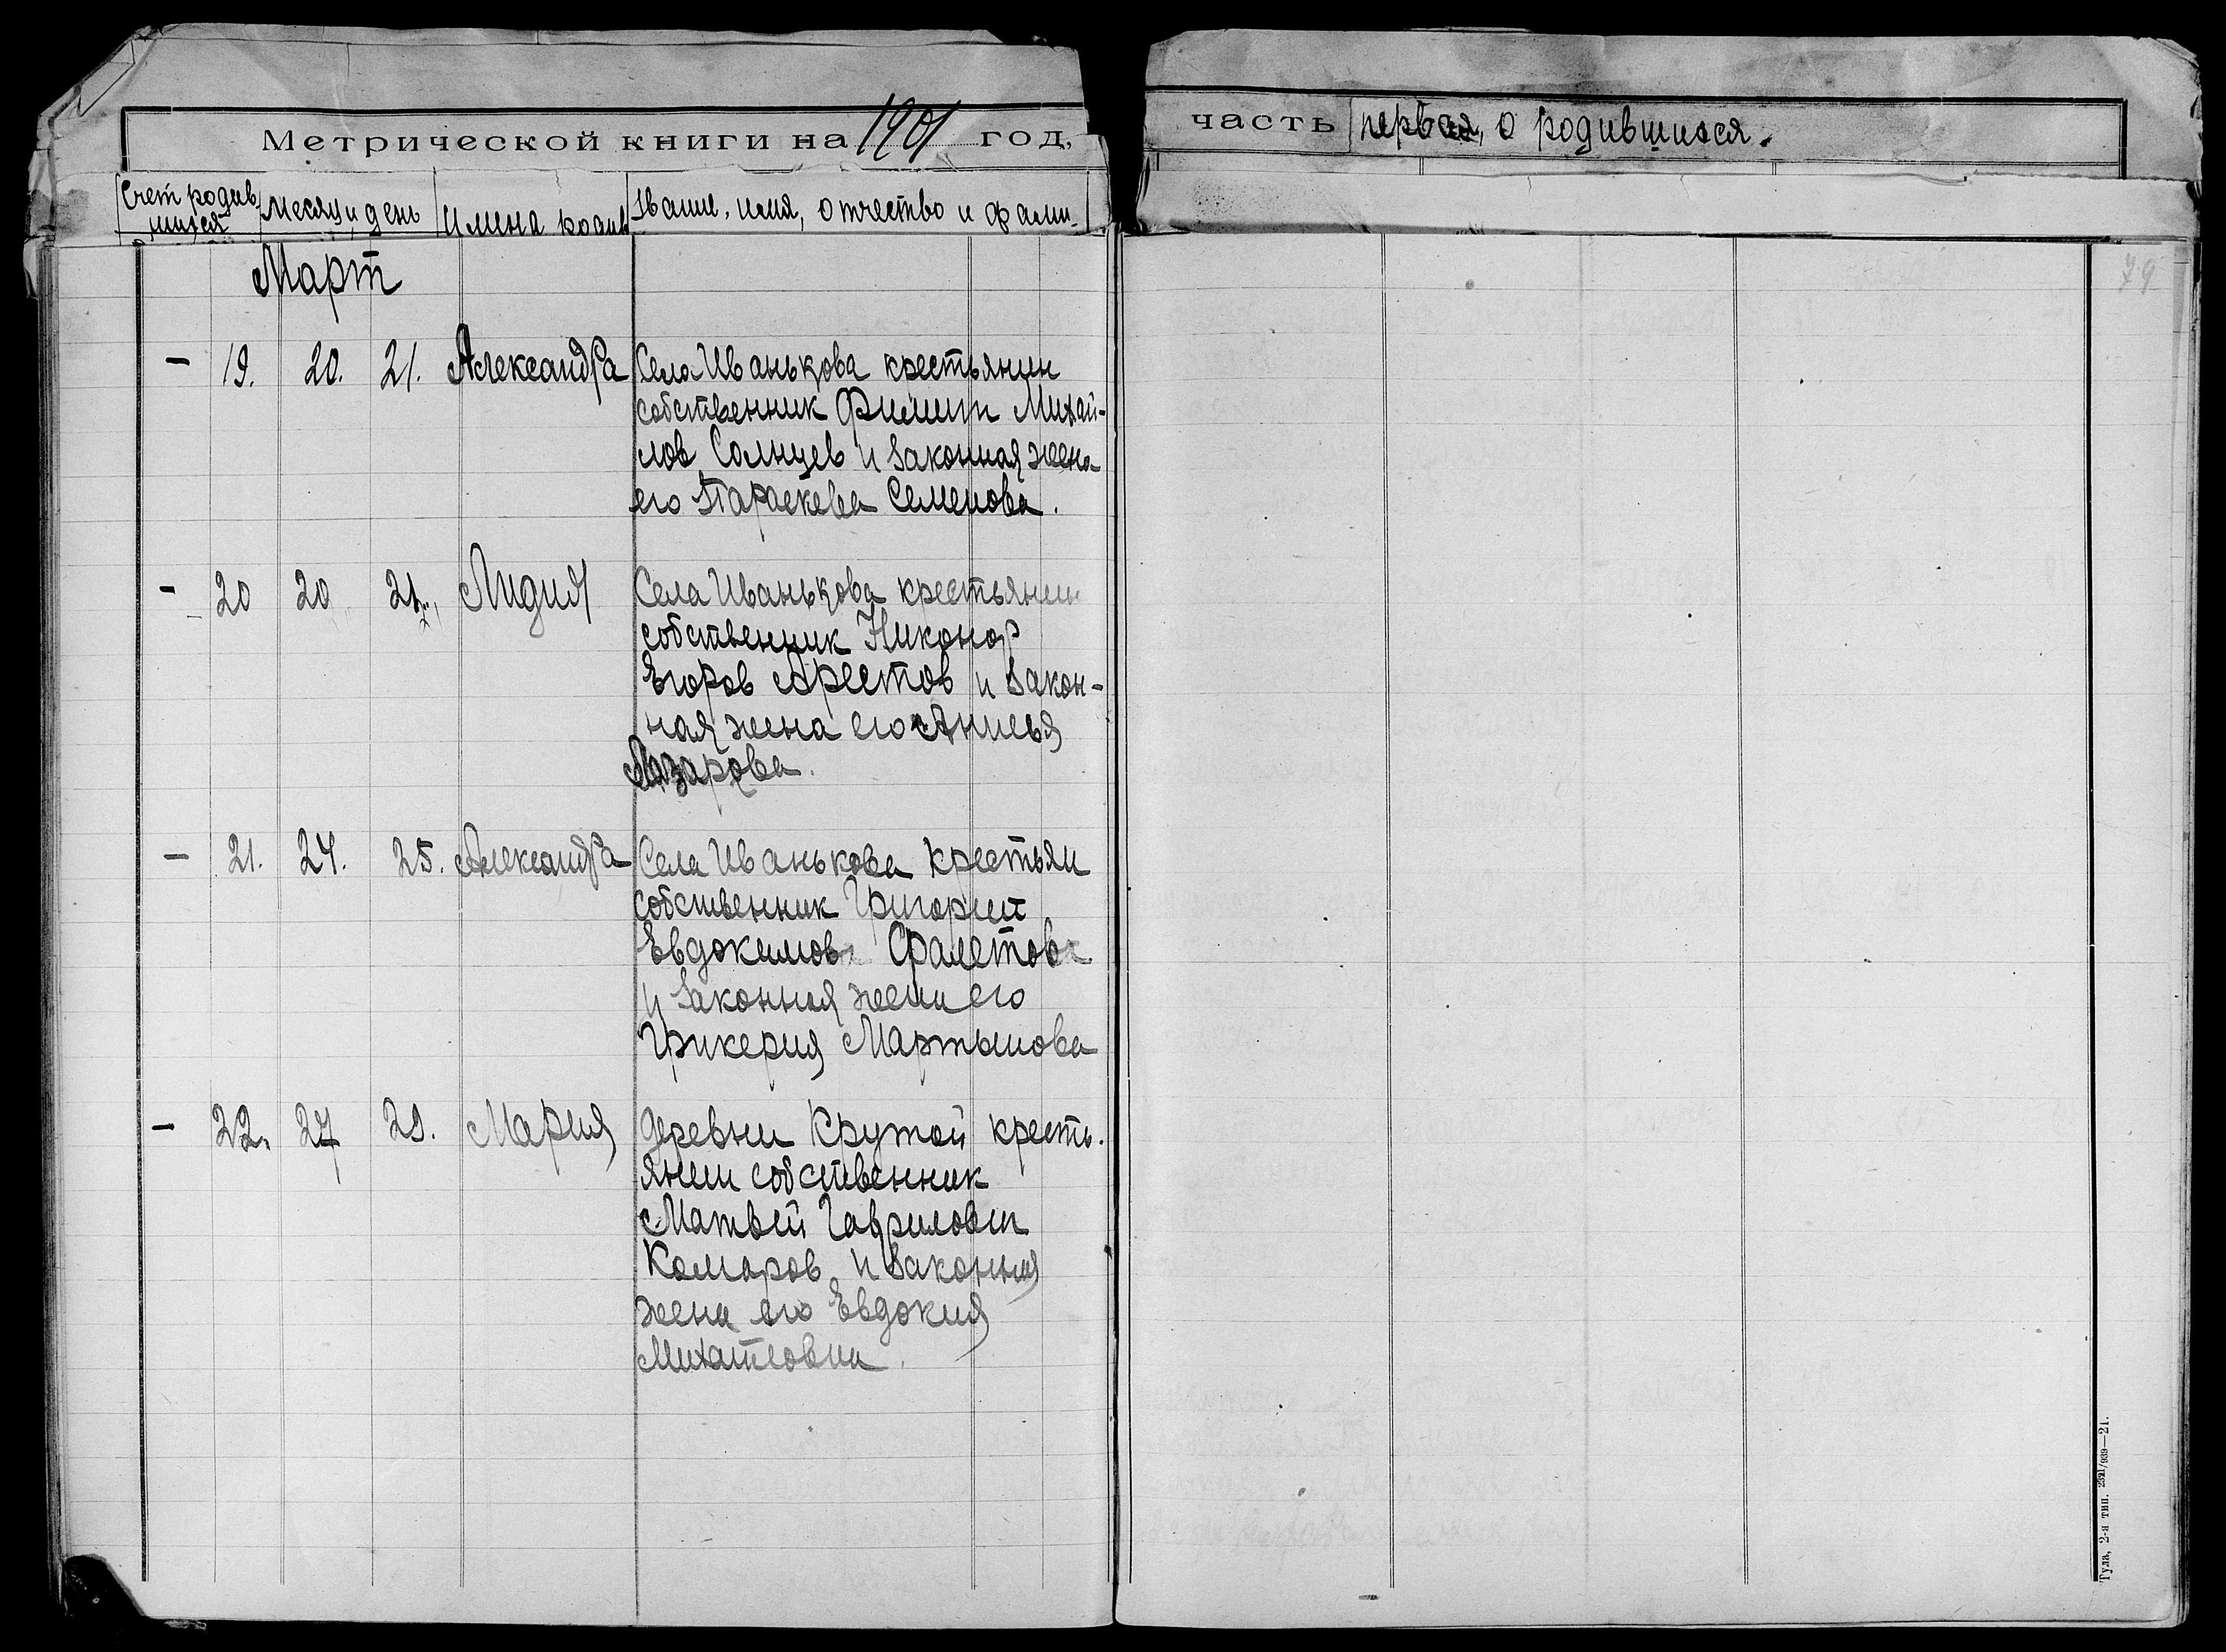 Метрической книги на 1901 год,
часть первая, о родившихся.
Счет родив
шихся
месяц и день
Имена родив
Звание, имя, отчество и фами-
Март
79
— 19. 20. 21. Александра Села Иванькова крестьянин
собственник Филипп Михай-
лов Солнцев и законная жена
его Параскева Семенова.
— 20 20 21. Лидия Села Иванькова крестьянин
собственник Никонор
Егоров Арестов и закон-
ная жена его Анисья
Лазарова.
— 21. 24. 25. Александра Села Иванькова крестьян
собственник Григорий
Евдокимов Фалетов
и законная жена его
Гликерия Мартынова
— 22. 27 29. Мария Деревни Крутой кресть.
янин собственник
Матвей Гаврилович
Комаров и законная
жена его Евдокия
Михайловна.
Тула, 2-я тип. 2321/939—21.